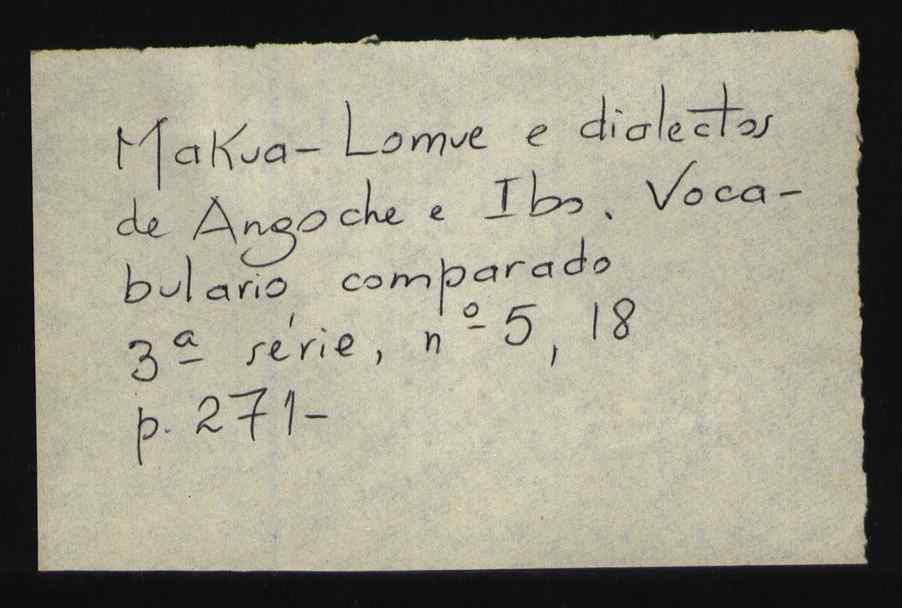 Makua-Lomue e dialectos
de Angoche e Ibo. Voca-
bulario comparado
3ª série, nº 5, 18
p. 271-